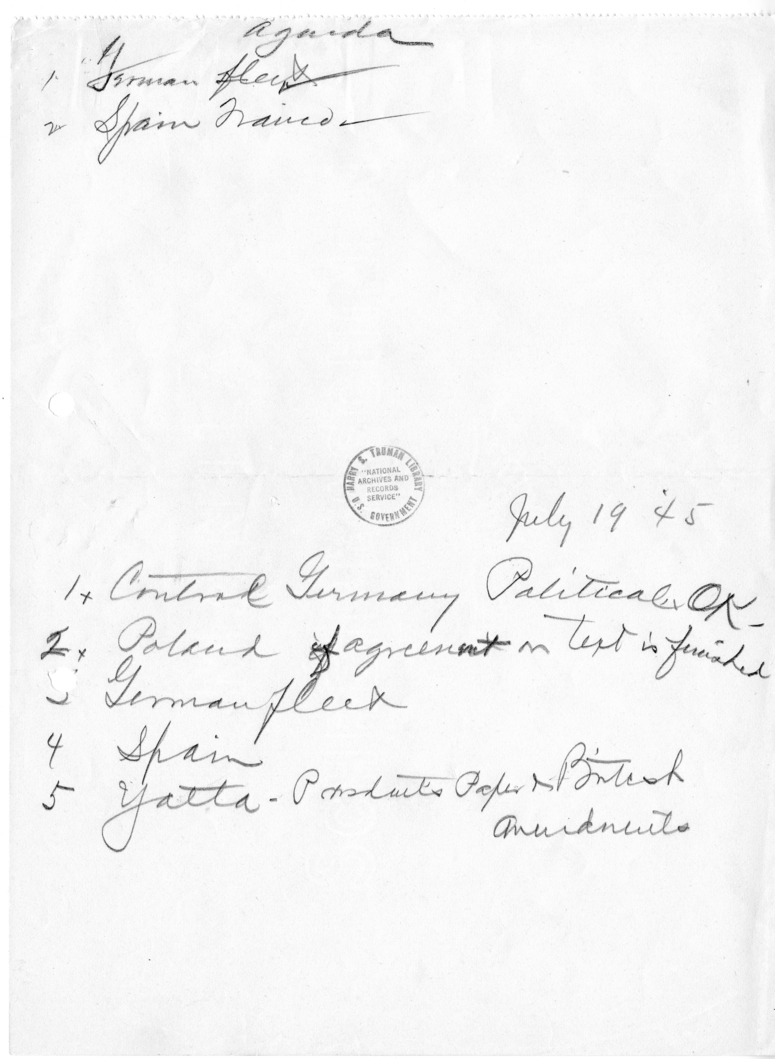 Agenda
1 German fleet
2 Spain Franco
HARRY S. TRUMAN LIBRARY
"NATIONAL
ARCHIVES AND
RECORDS
SERVICE"
U.S. GOVERNMENT
July 19 '45
1x Control Germany Political OK
2x Poland if agreement on text is finished
3 German fleet
4 Spain
5 Yalta - Presdints Paper & British
amendments